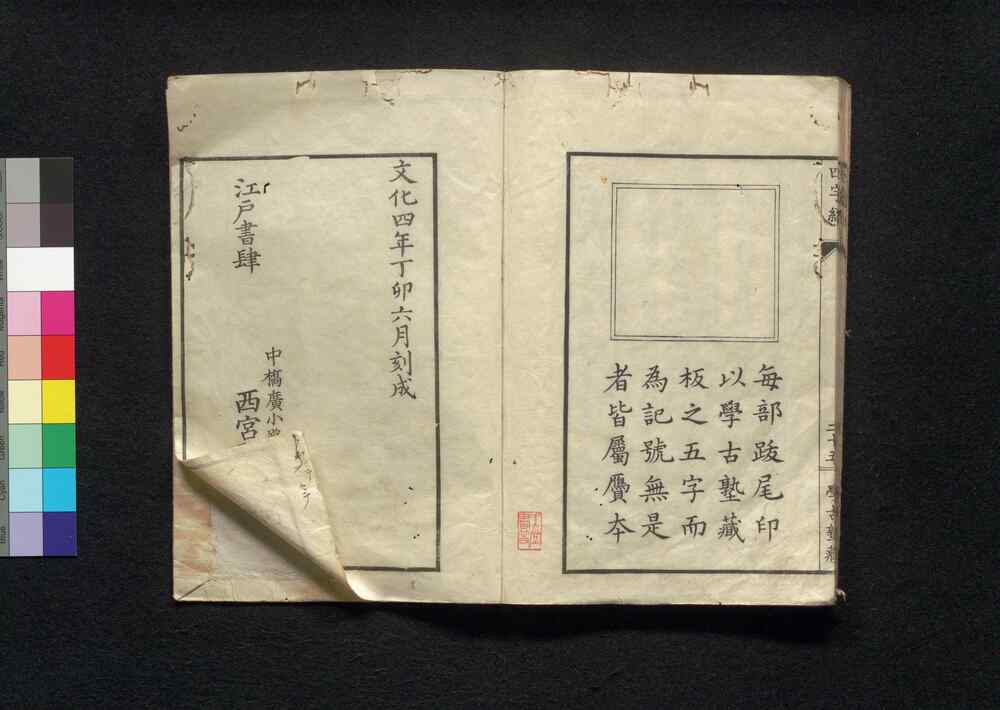 四字經
二十五
學古塾藏
每部跋尾印
以學古塾藏
板之五字而
為記號無是
者皆屬贋本
文化四年丁卯六月刻成
江戶書肆
中橋廣小路
西宮